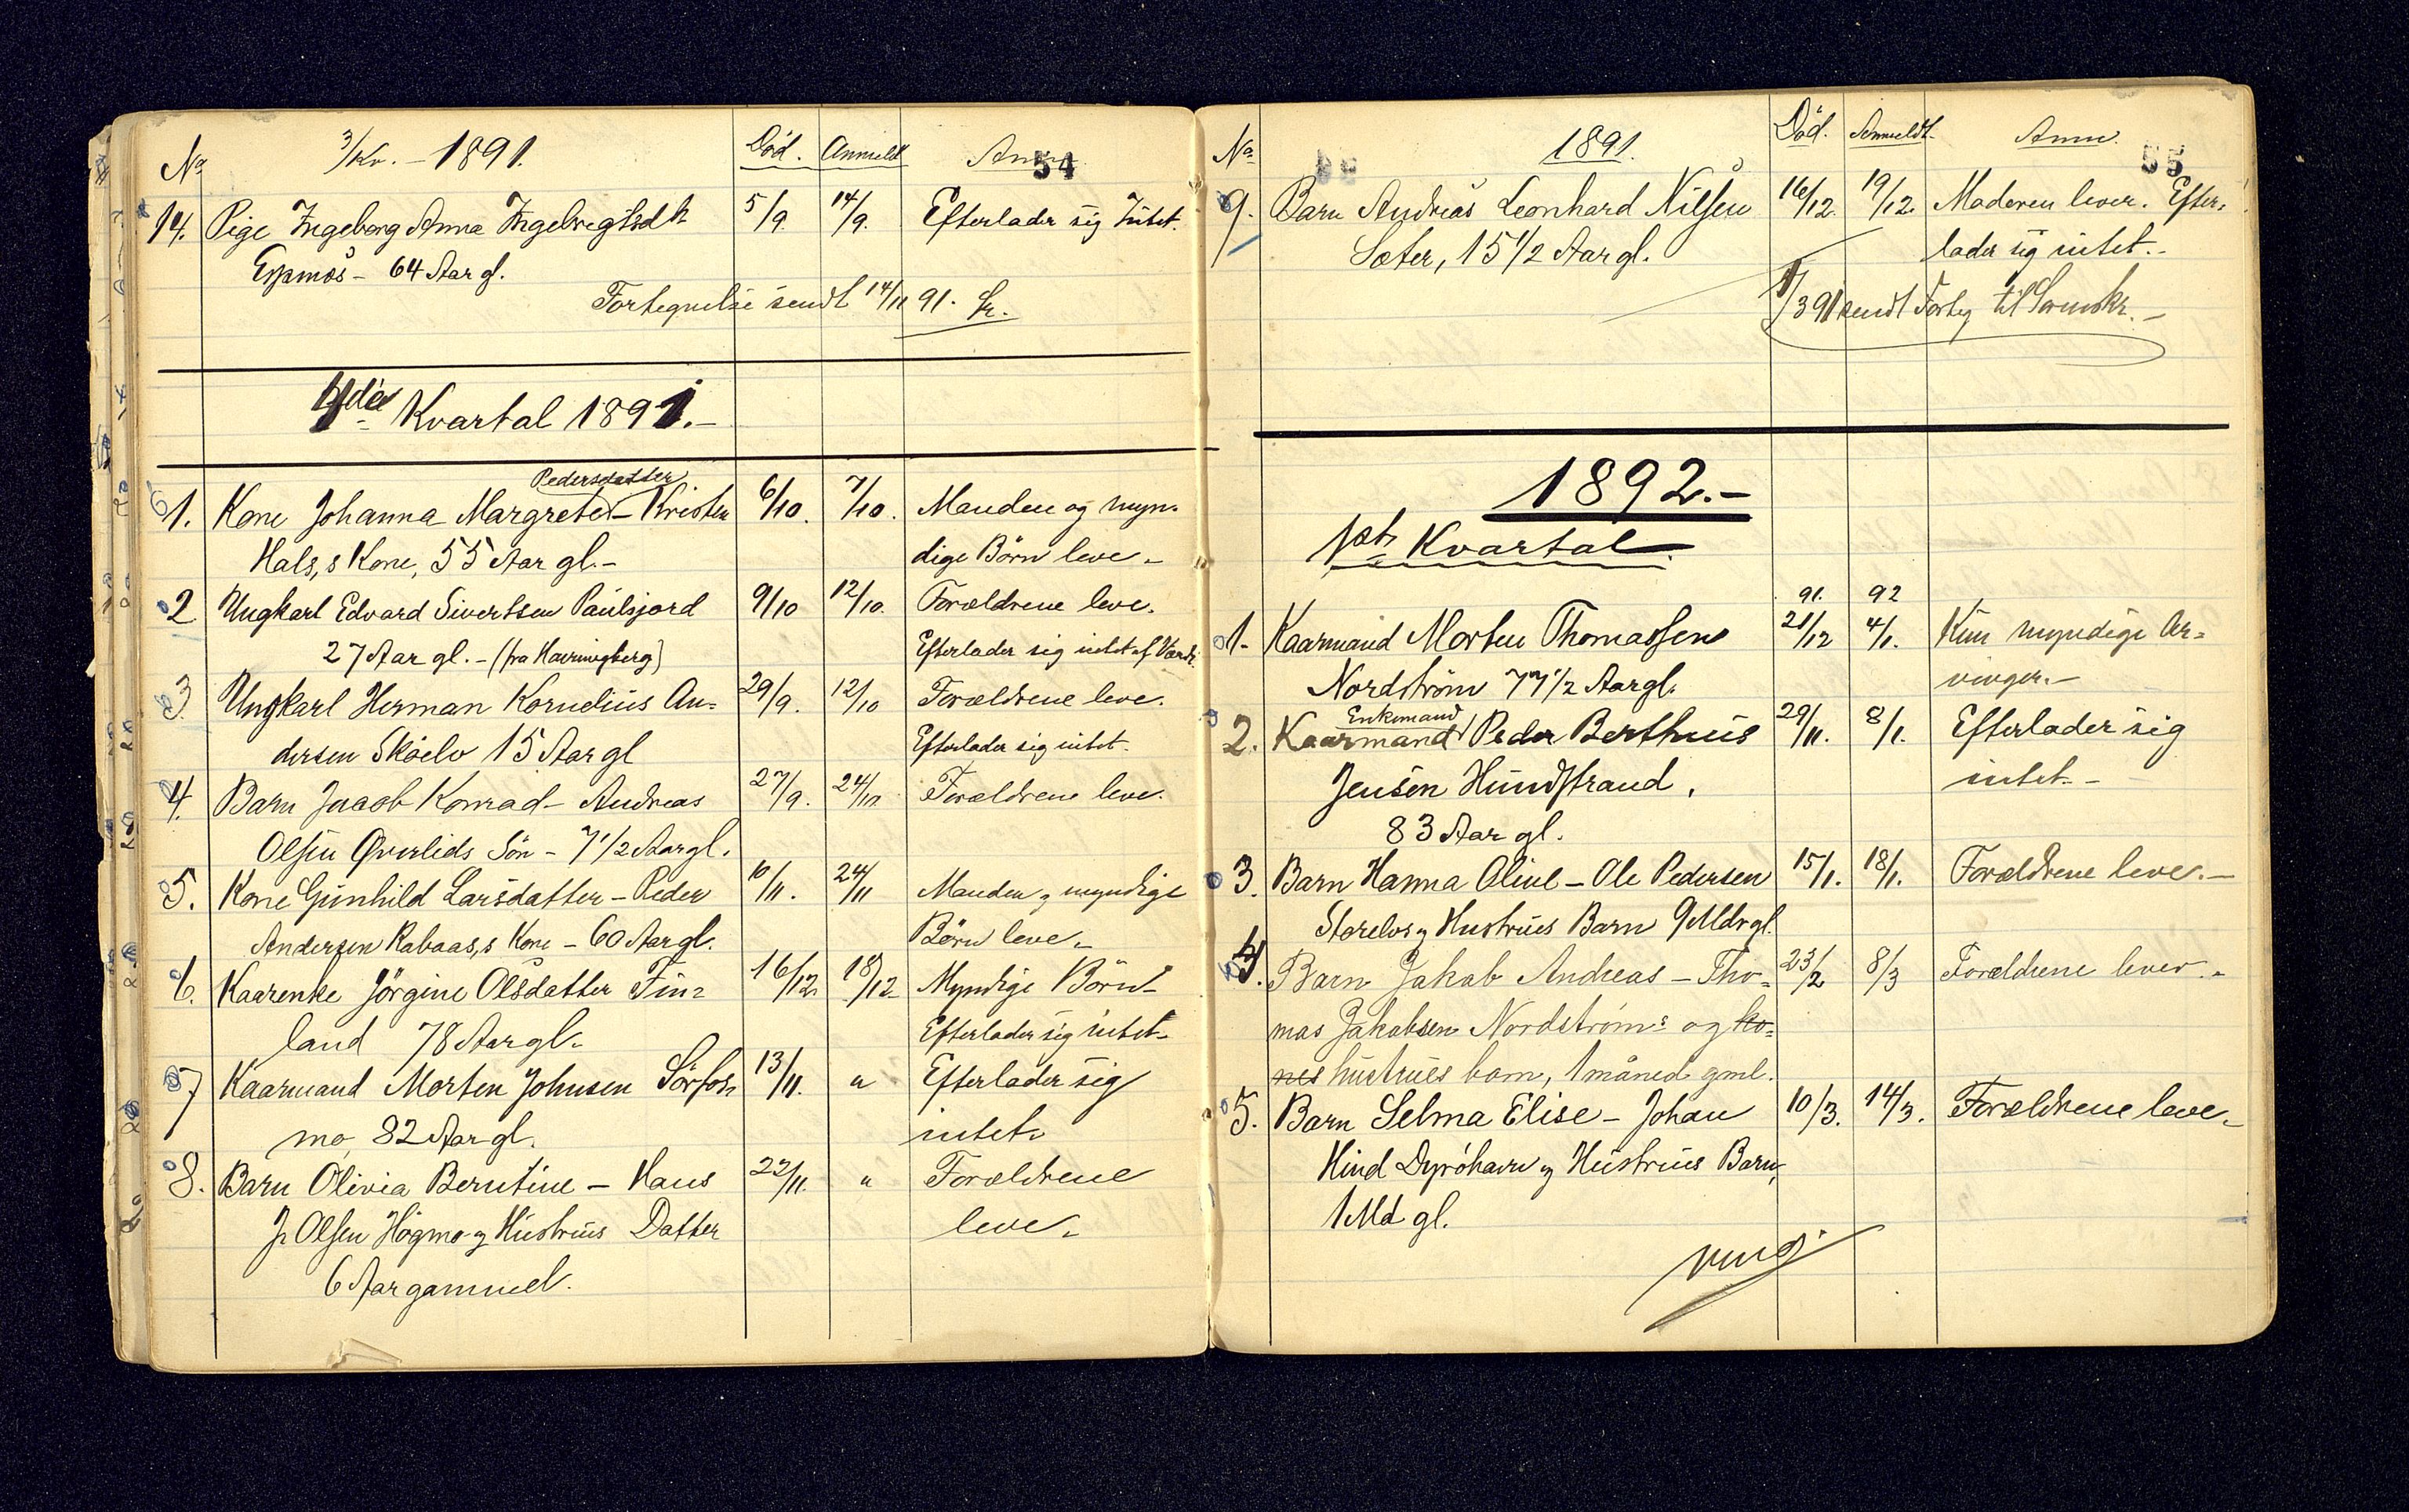 No 3/Kv. - 1891. Död. Anmeldt Anm. 54
14. Pige Ingeborg Anna Ingebrigtsdtr 5/9. 14/9. Efterlader sig Intet.
Espmos - 64 Aar gl.
Fortegnelse sendt 14/11 91.
4de Kvartal 1891.-
Pedersdatter
1. Kone Johanna Margrete - Kristen 6/10. 7/10. Manden og myn-
Hals,s Kone, 55 Aar gl.- dige Börn leve -
2 Ungkarl Edvard Sivertsen Paulsjord 9/10 12/10. Forældrene leve.
27 Aar gl. - (fra Havningberg) Efterlader sig intet af Værdi.
3. Ungkarl Herman Kornelius An- 29/9. 12/10 Forældrene leve.
dersen Sköelv 15 Aar gl Efterlader sig intet.
4. Barn Jacob Konrad - Andreas 27/9. 24/10 Forældrene leve.
Olsen Øverlids Sön - 7 1/2 Aar gl.
5. Kone Gunhild Larsdatter - Peder 10/11. 24/11 Manden og myndige
Andersen Rabaas,s Kone - 60 Aar gl. Börn leve -
6. Kaarenke Jörgine Olsdatter Fin- 16/12. 18/12- Myndige Börn -
land 78 Aar gl. Efterlader sig intet -
7 Kaarmand Morten Johnsen Sörfos- 13/11. " Efterlader sig
mo, 82 Aar gl. intet.
8. Barn Olivia Berntine - Hans 22/11. " Forældrene
J. Olsen Högmo og Hustrues Datter leve -
6 Aar gammel.
No 1891. Död. Anmeldt. Anm. 55
9. Barn Andreas Leonhard Nilsen 16/12. 19/12. Moderen lever. Efter-
Sæter, 15 1/2 Aar gl. lader sig intet.-
sendt Forteg til Sorenskr. -
1892.-
1ste Kvartal.
91. 92
1- Kaarmand Morten Thomassen 21/12 4/1. Kun myndige Ar-
Nordström 77 1/2 Aar gl. vinger. -
Enkemand
2. Kaarmand Peder Bertheus 29/11. 8/1. Efterlader sig
Jensen Hundstrand, intet. -
83 Aar gl.
3. Barn Hanna Oline - Ole Pedersen 15/1. 18/1. Forældrene leve. -
Storelvs og Hustrues Barn 9 Mdr gl.
4. Barn Jakob Andreas - Tho- 23/2 8/3 Forældrene lever. -
mas Jakobsen Nordströms og ko-
nes hustrues barn, 1 måned gml.
5. Barn Selma Elise - Johan 10/3. 14/3. Forældrene leve -
Hind Dyröhavn og Hustrues Barn,
1 Md gl.